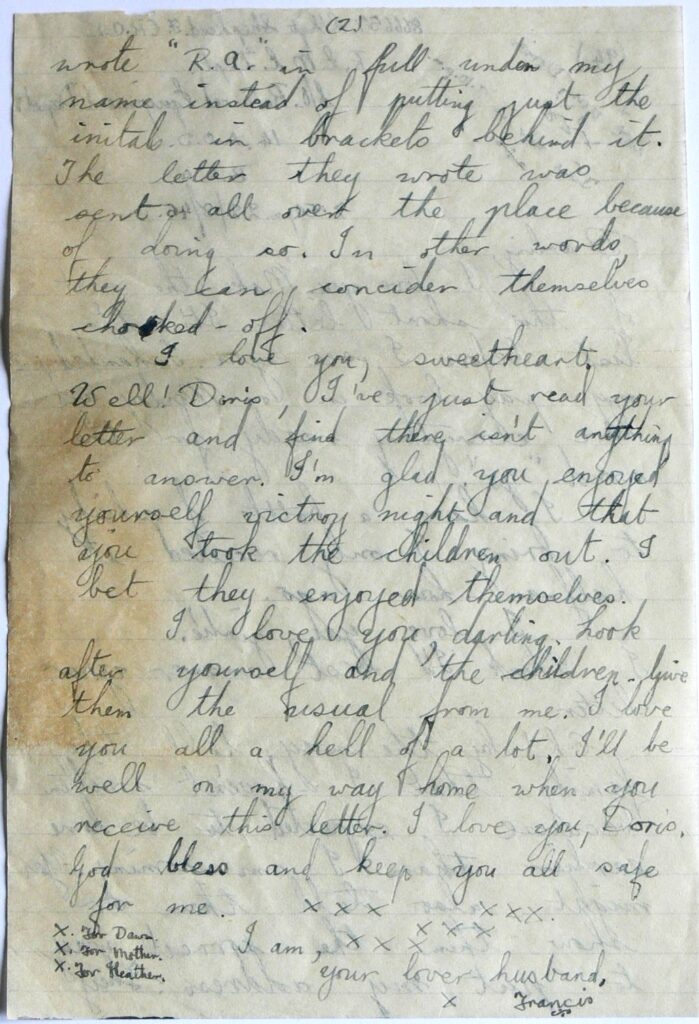 (2)
wrote "R.A." in full under my
name instead of putting just the
initals in brackets behind it.
The letter they wrote was
sent all over the place because
of doing so. In other words,
they can concider themselves
chocked-off.
I love you, sweetheart.
Well! Doris, I've just read your
letter and find there isn't anything
to answer. I'm glad you enjoyed
yourself victroy night and that
you took the children out. I
bet they enjoyed themselves.
I love you, darling. Look
after yourself and the children. Give
them the usual from me. I love
you all a hell of a lot. I'll be
well on my way home when you
receive this letter. I love you, Doris.
God bless and keep you all safe
for me. x x x x x x.
x x x x
X. For Dawn. I am, x x x x
X. For Mother.
X. For Heather. your lover husband,
x Francis